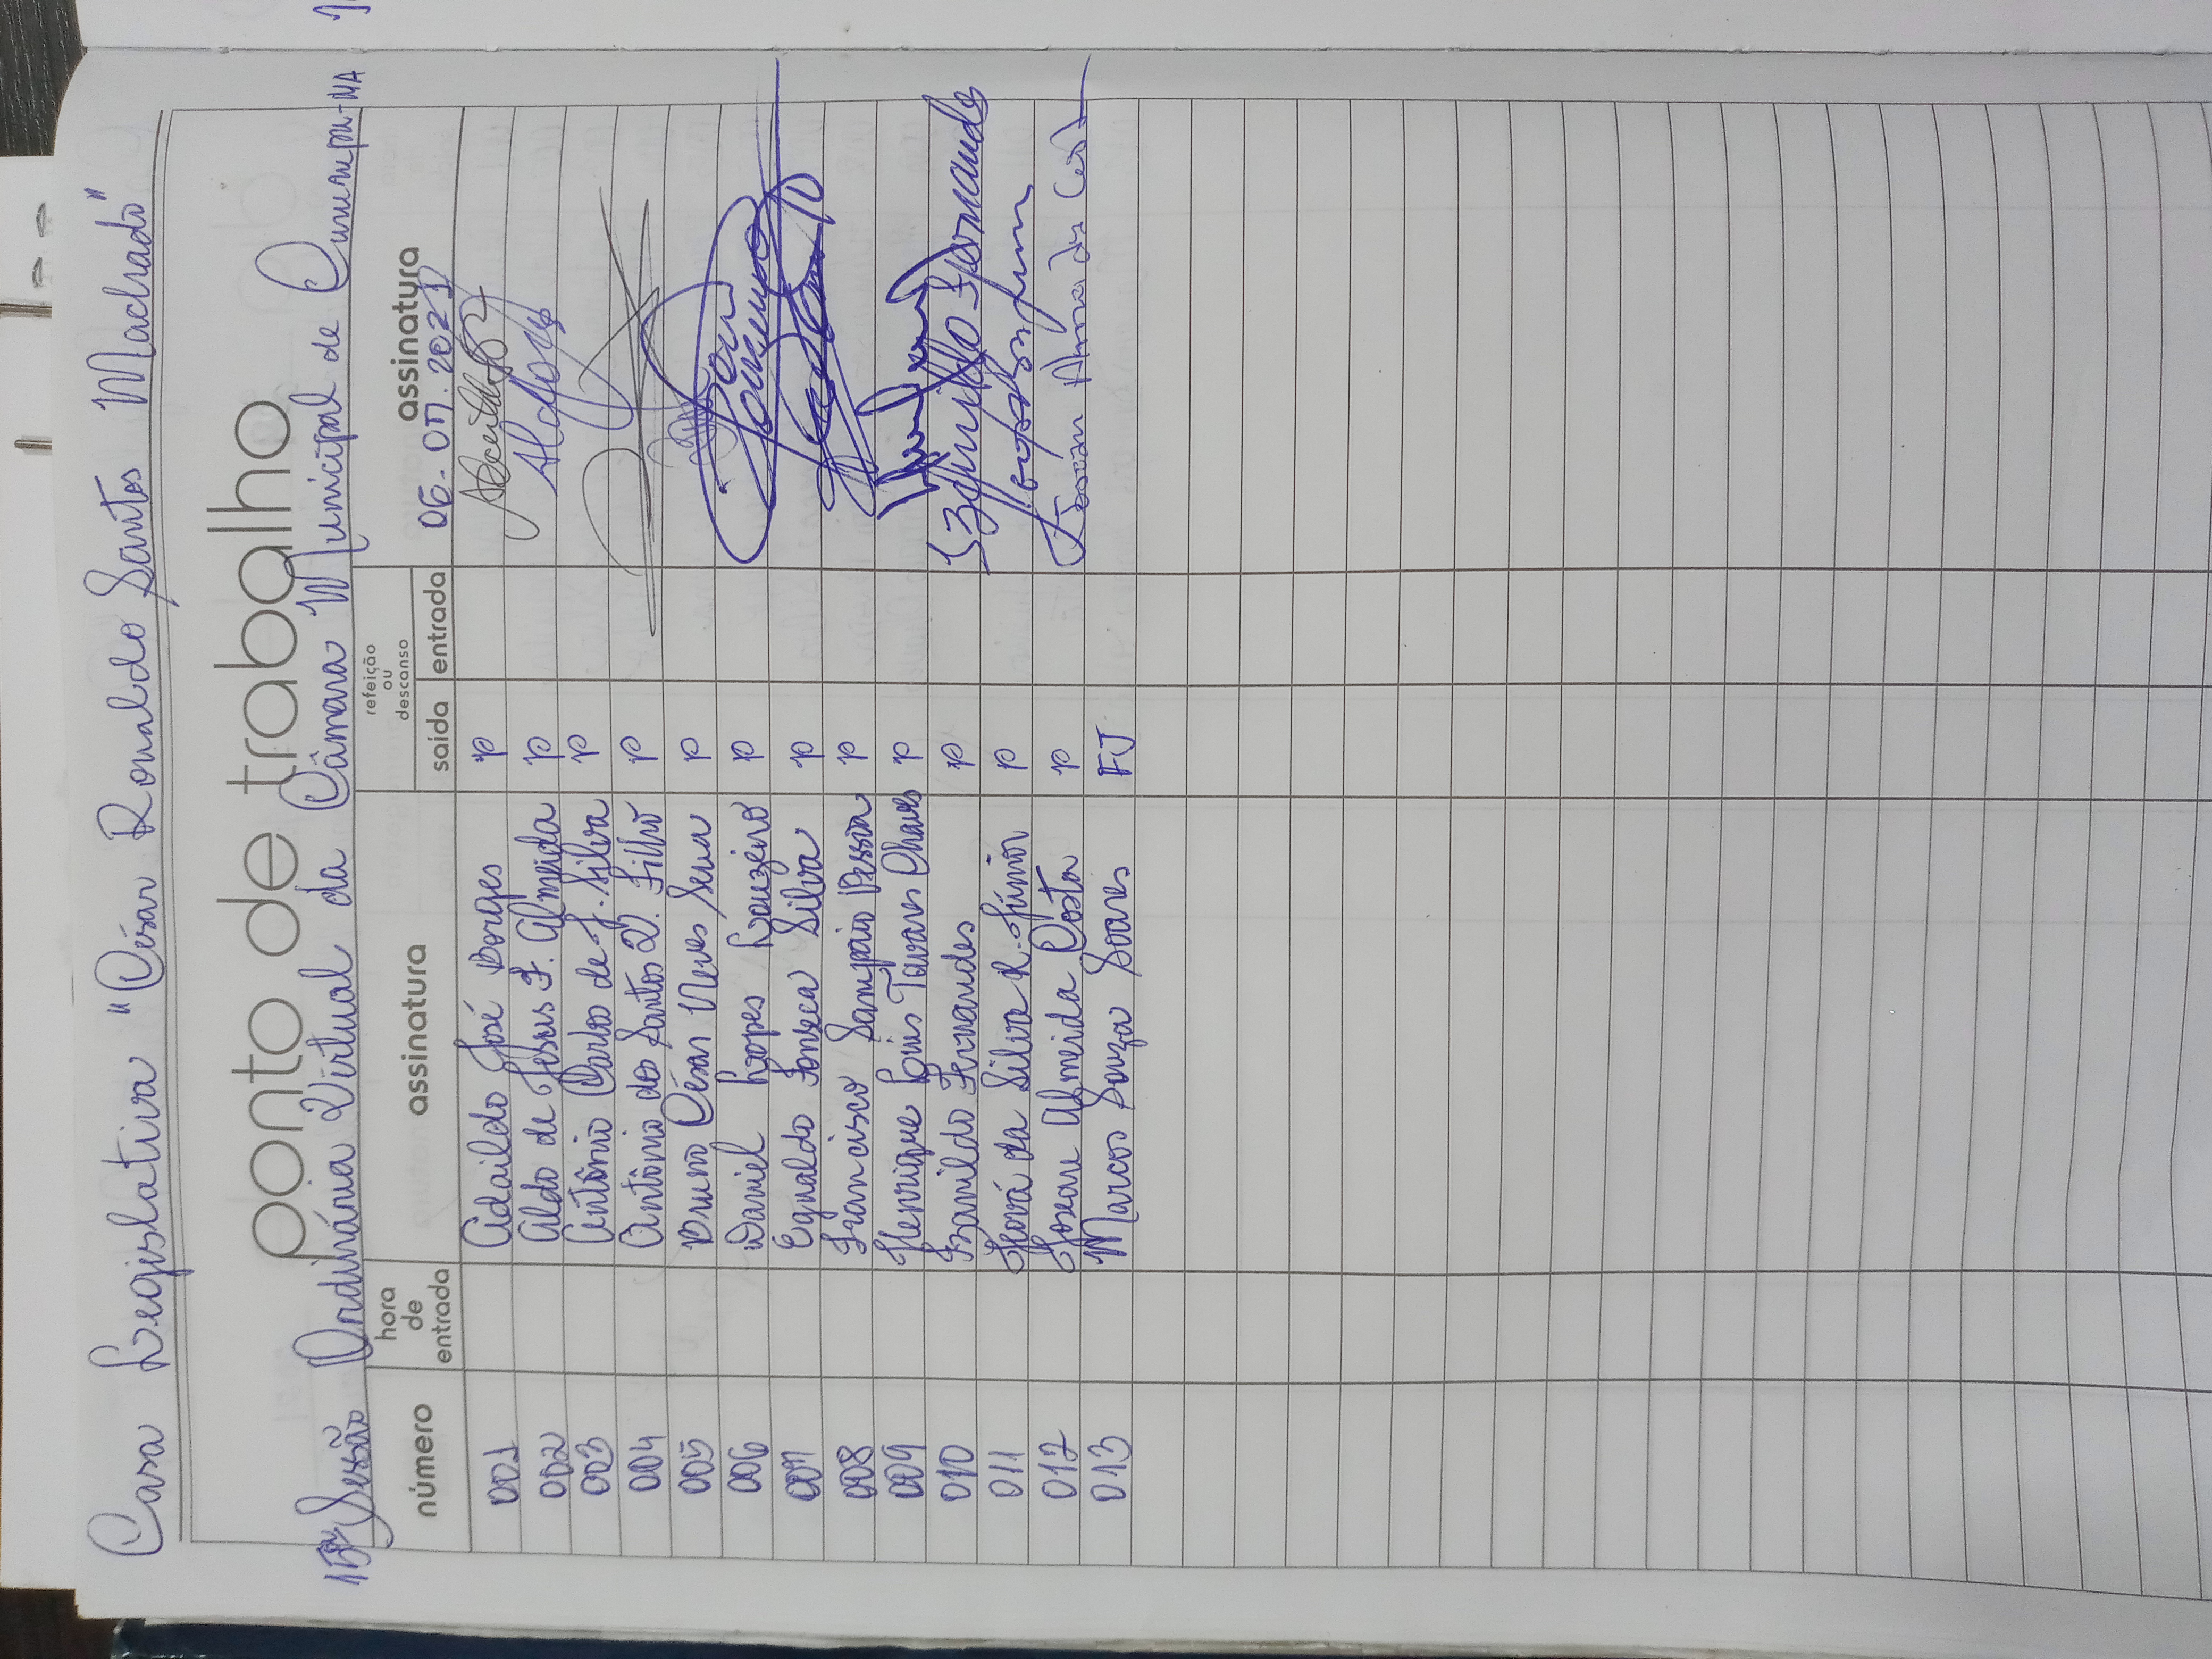 Casa Legislativa "César Ronaldo Santos Machado"
ponto de trabalho
15ª Sessão Ordinária Virtual da Câmara Municipal de
número hora de entrada assinatura refeição ou descanso saída entrada assinatura
06.07.2021
001 Adaildo José Borges P
002 Aldo de Jesus F. Almeida P
003 Antônio Carlos de J. Silva P
004 Antônio dos Santos V. Filho P
005 Bruno César Neves Sena P
006 Daniel Lopes Louzeiro P
007 Egnaldo Fonseca Silva P
008 Francisco Sampaio Pessoa P
009 Henrique Luis Tavares Chaves P
010 Izanildo Fernandes P
011 Jeová da Silva R. Júnior P
012 Josean Almeida Costa P Josean Almeida Costa
013 Marcos Souza Soares FJ